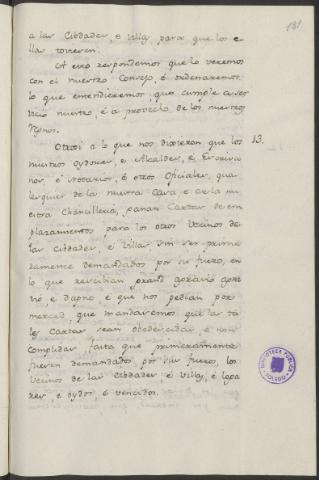 181
a las Cibdades e Villas, para que los e-
llas toviesen.
A esto respondemos que lo veremos
con el nuestro Consejo, é ordenaremos
lo que entendieremos, que cumple a ser-
vicio nuestro, é a provecho de los nuestros
Regnos.
Otrosi a lo que nos dixieron que los 13.
nuestros oydores, e Alcaldes, é Escriva-
nos, é Notarios, é otros Oficiales, qua-
lesquier de la nuestra Casa e de la nu-
estra Chancilleria, davan Cartas de em
plazamientos para los otros Vecinos de
las Cibdades, é Villas, sin ser prime
ramente demandados por su fuero, en
lo que rescibian grand agravio
e dapno, e que nos pedian por
merced, que mandasemos que las ta
les Cartas sean obedescidas, e non
complidas fasta que primeramente
fuesen demandados, por su fuero, los
Vecinos de las Cibdades, é Villas, é Loga
res, e oydos, é vencidos.
BIBLIOTECA PUBLICA
TOLEDO